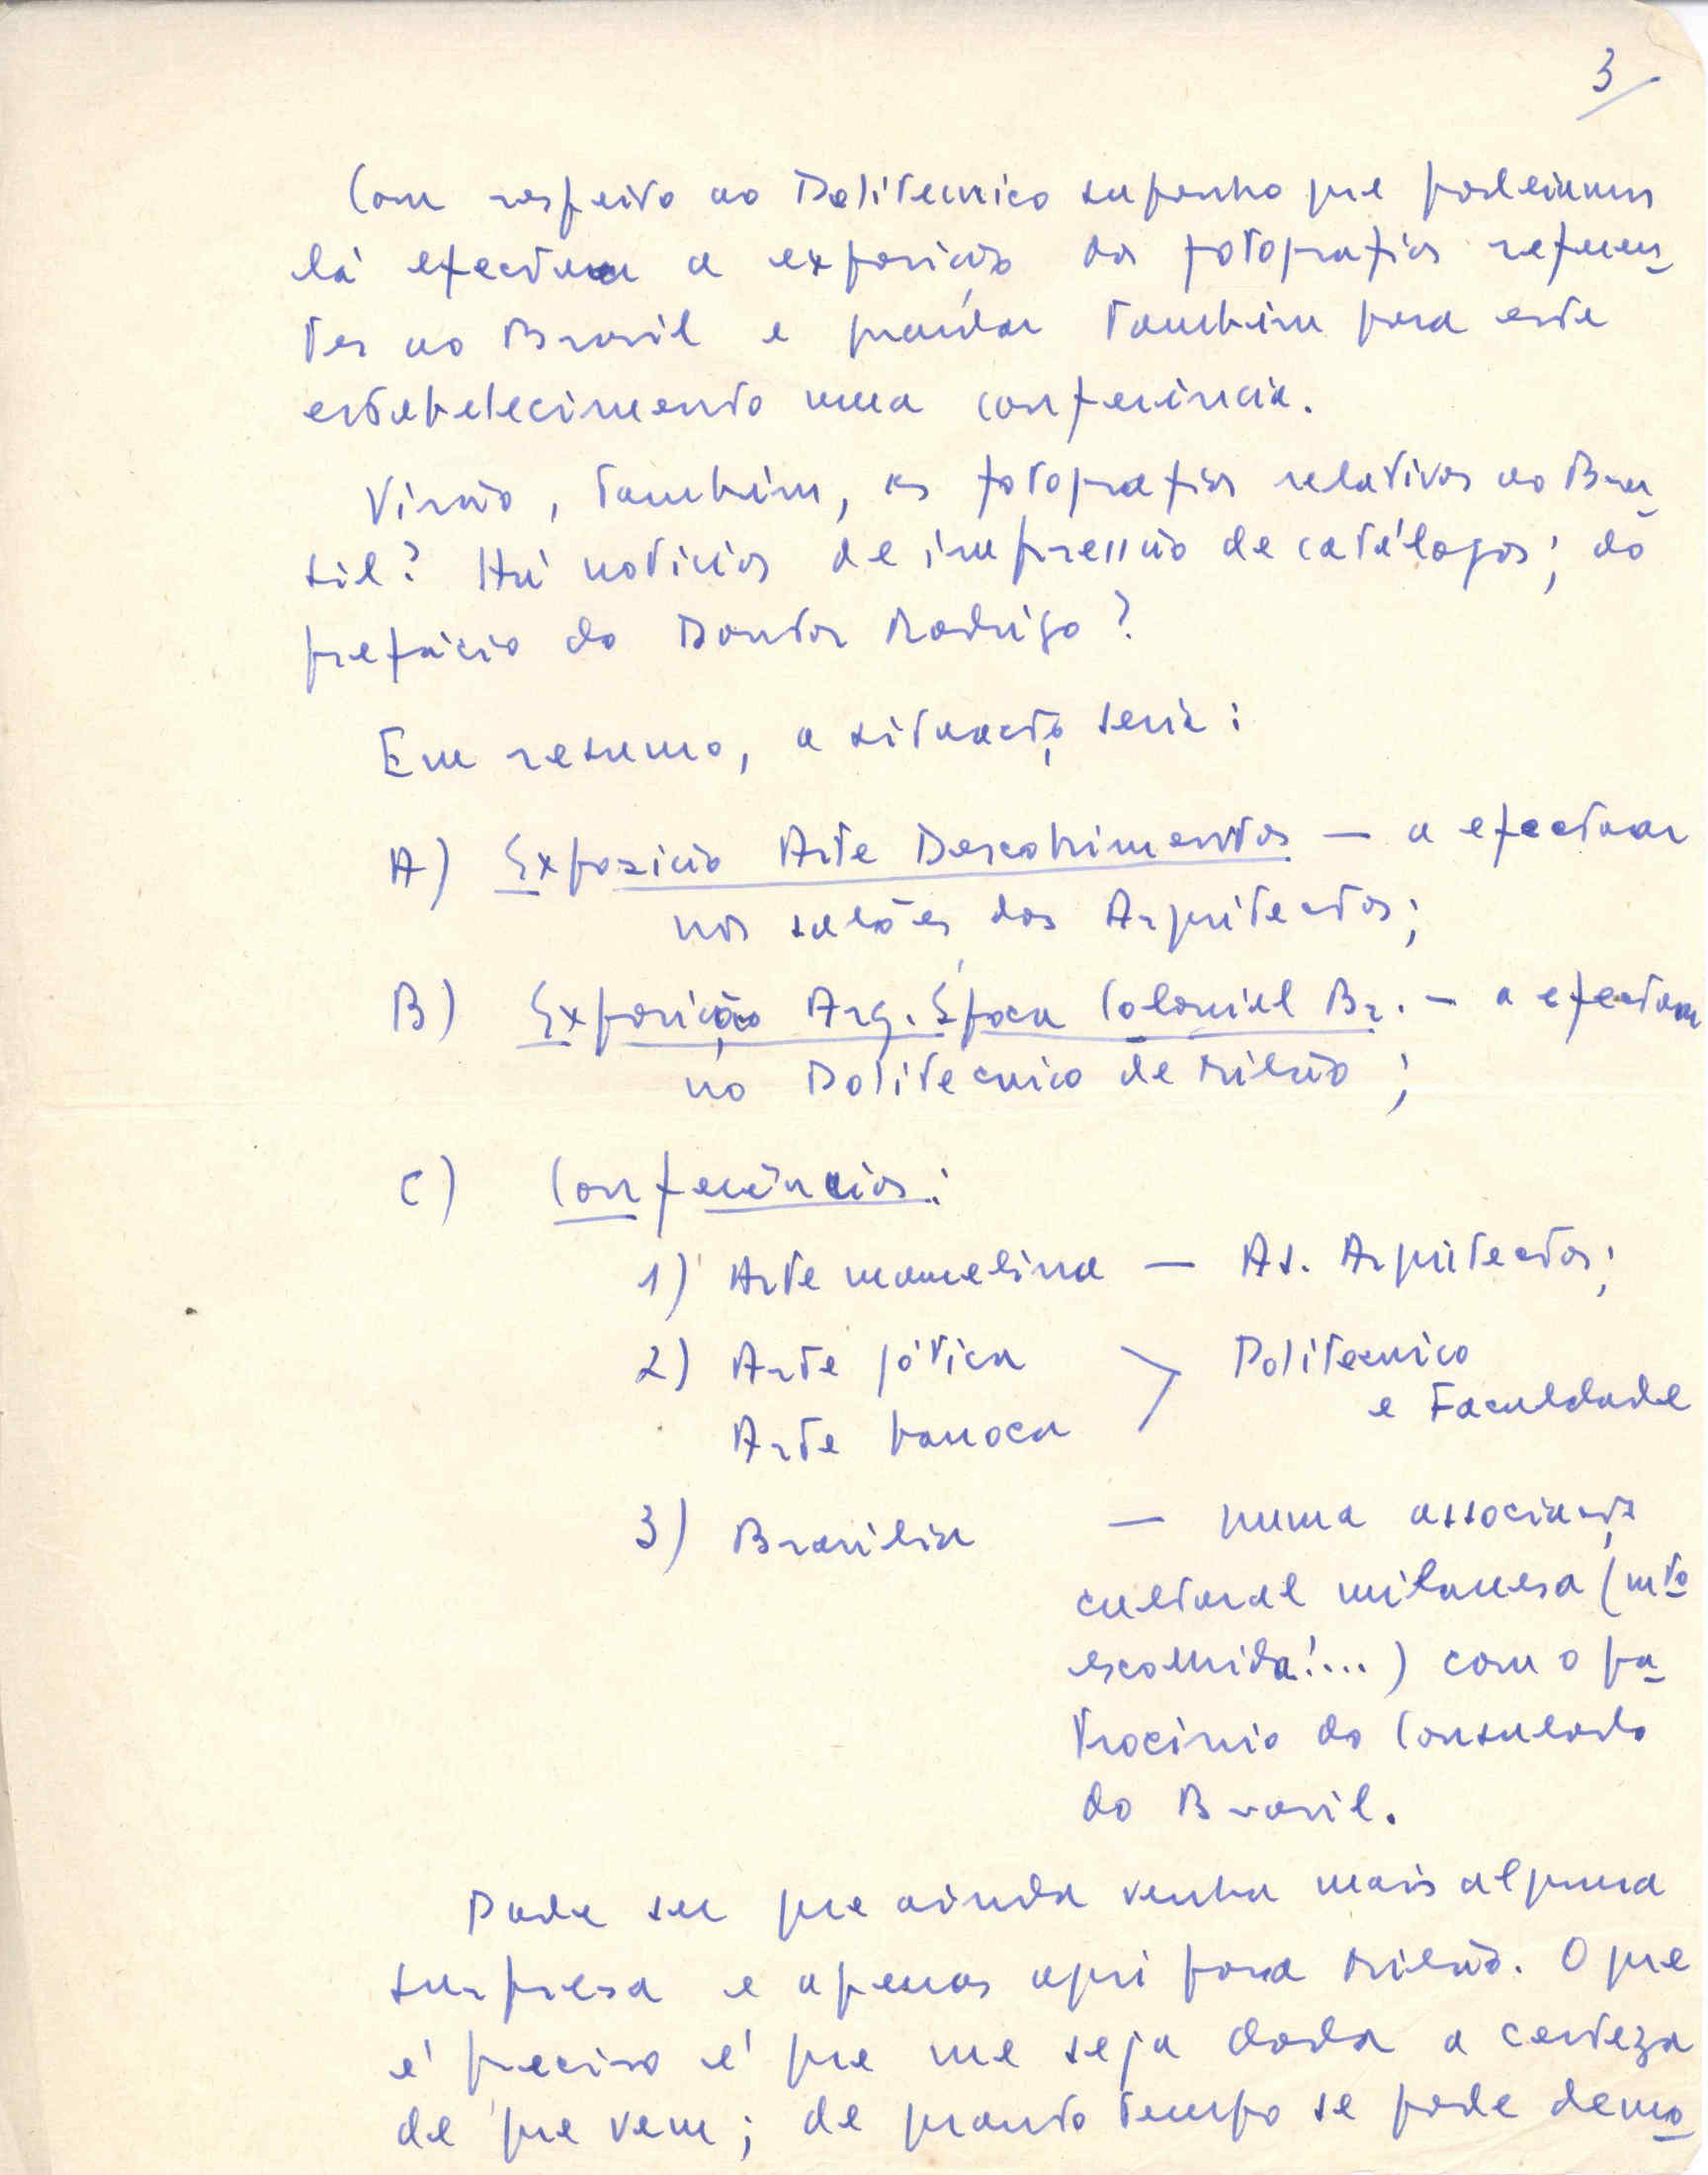 3/
Com respeito ao Politecnico suponho que poderíamos
lá efectuar a exposição das fotografias referen-
tes ao Brasil e guardar também para este
estabelecimento uma conferência.
Virão, também, as fotografias relativas ao Bra-
sil? Há notícias de impressão de catálogos; do
prefácio do Doutor Rodrigo?
Em resumo, a situação seria:
A) Exposição Arte Descobrimentos — a efectuar
nos salões dos Arquitectos;
B) Exposição Arq. Época Colonial Br. — a efectuar
no Politecnico de Milão;
C) Conferências:
1) Arte manuelina — As. Arquitectos;
2) Arte gótica > Politecnico
e Faculdade
Arte barroca
3) Brasília — numa associação
cultural milanesa (mto
escolhida!...) com o pa-
trocínio do Consulado
do Brasil.
Pode ser que ainda venha mais alguma
surpresa e apenas aqui para Milão. O que
é preciso é que me seja dada a certeza
de que vem; de quanto tempo se pode demo-